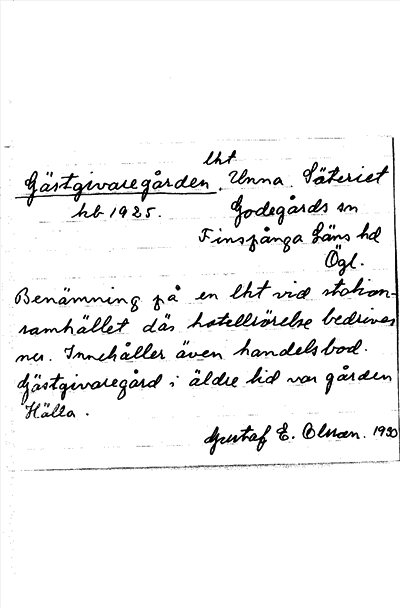 lht
Gästgivaregården, Unna. Säteriet
hb 1925. Godegårds sn
Finspånga Läns hd
Ögl.
Benämning på en lht vid station-
samhället där hotellrörelse bedrives
nu. Innehåller även handelsbod.
Gästgivaregård i äldre tid var gården
Hälla.
Gustaf E. Olsson. 1930